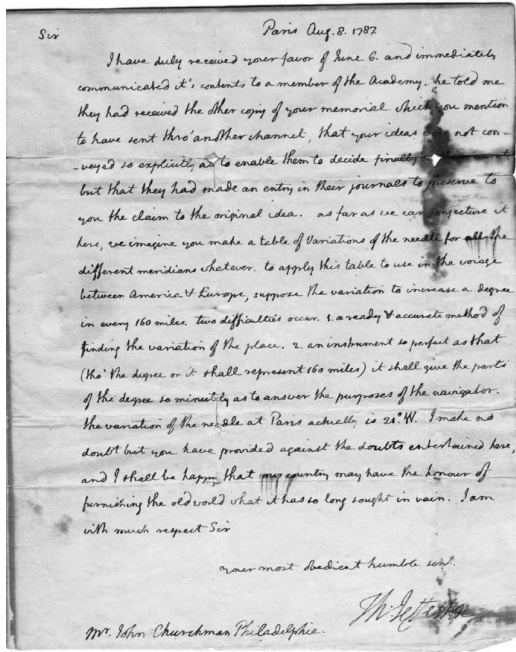 Sir Paris Aug. 8. 1787
I have duly received your favor of June 6. and immediately
communicated it's contents to a member of the Academy. he told me
they had received the other copy of your memorial which you mention
to have sent thro' another channel, that your ideas were not con-
-veyed so explicitly as to enable them to decide finally
but that they had made an entry in their journals to preserve to
you the claim to the original idea. as far as we can conjecture it
here, we imagine you make a table of variations of the needle for all the
different meridians whatever. to apply this table to use in the voiage
between America & Europe, suppose the variation to increase a degree
in every 160 miles. two difficulties occur. 1. a ready & accurate method of
finding the variation of the place. 2. an instrument so perfect as that
(tho' the degree on it shall represent 160 miles) it shall give the parts
of the degree so minutely as to answer the purposes of the navigator.
the variation of the needle at Paris actually is 21° W. I make no
doubt but you have provided against the doubts entertained here,
and I shall be happy that our country may have the honour of
furnishing the old world what it has so long sought in vain. I am
with much respect Sir
your most obedient humble servt.
Th: Jefferson
Mr. John Churchman Philadelphia.